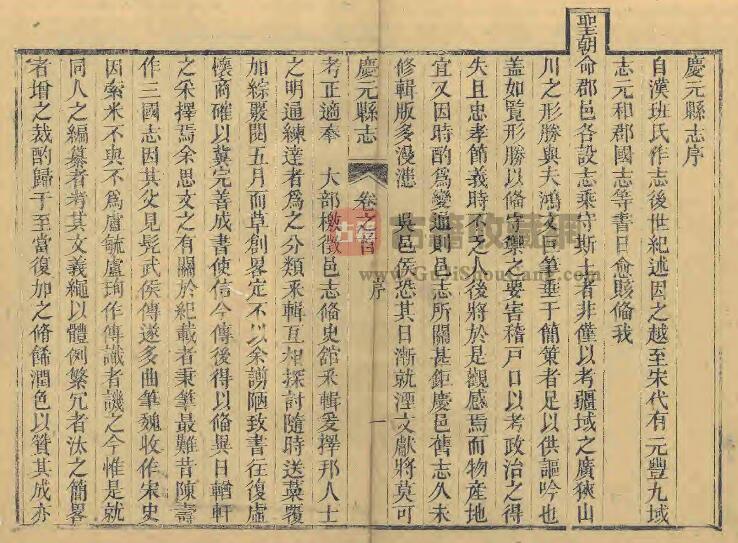 慶元縣志序
自漢班氏作志後世紀述因之越至宋代有元豐九域
志元和郡國志等書日愈賅備我
聖朝命郡邑各設志乘守斯土者非僅以考疆域之廣狹山
川之形勝與夫鴻文巨筆垂于簡策者足以供謳吟也
盖如覽形勝以備守禦之要害稽戶口以考政治之得
失且忠孝節義時不之人後將於是觀感焉而物産地
宜又因時酌爲變通則邑志所關甚鉅慶邑舊志久未
修輯版多漫漶 吳邑侯恐其日漸就湮文獻將莫可
慶元縣志 卷之首 序 一
考正適奉 大部檄徵邑志備史館釆輯爰擇邦人士
之明通練達者爲之分類釆輯互相探討隨時送藁覆
加綜覈閱五月而草創畧定不以余謭陋致書往復虛
懷商確以冀完善成書使信今傳後得以備異日輶軒
之采擇焉余思文之有關於紀載者秉筆最難昔陳壽
作三國志因其父見髡武侯傳遂多曲筆魏收作宋史
因索米不與不爲盧毓盧珣作傳識者譏之今惟是就
同人之編纂者考其文義繩以體例繁冗者汰之簡畧
者增之裁酌歸于至當復加之脩餙潤色以贊其成亦
古籍收藏网
www.GuJiShouCang.com